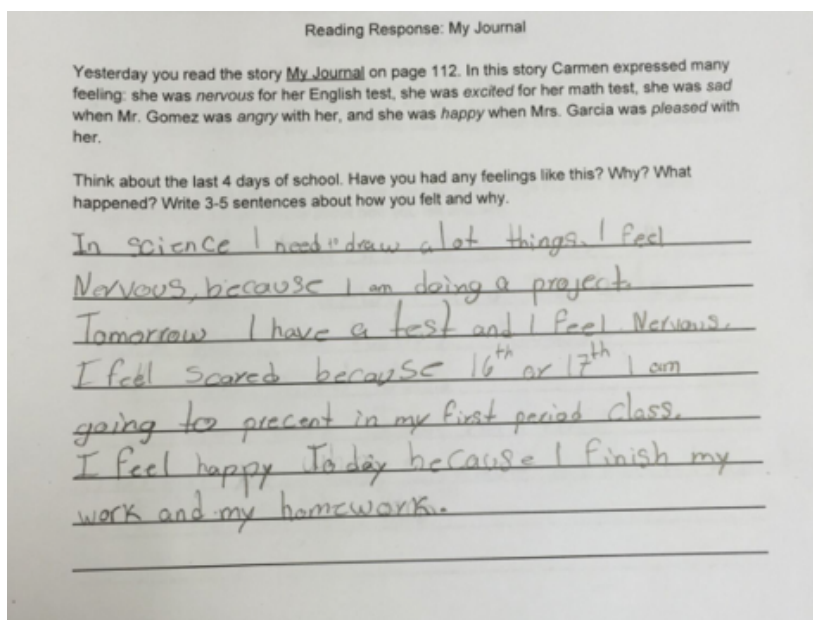 Reading Response: My Journal
Yesterday you read the story My Journal on page 112. In this story Carmen expressed many
feeling: she was nervous for her English test, she was excited for her math test, she was sad
when Mr. Gomez was angry with her, and she was happy when Mrs. Garcia was pleased with
her.
Think about the last 4 days of school. Have you had any feelings like this? Why? What
happened? Write 3-5 sentences about how you felt and why.
In science I need draw a lot things. I feel
Nervous, because I am doing a project.
Tomorrow I have a test and I feel Nervous.
I feel scared because 16th or 17th I am
going to precent in my first period class.
I feel happy Today because I finish my
work and my homework.